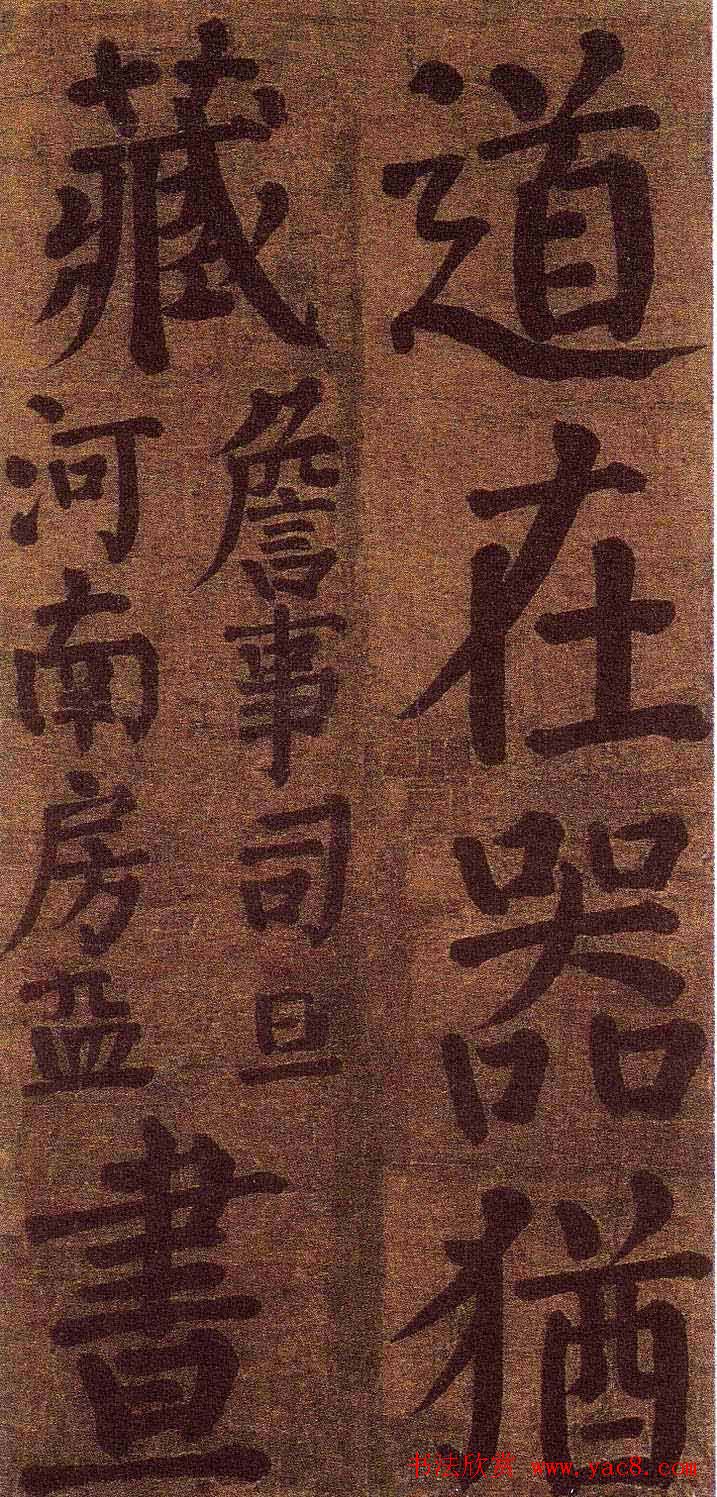 道在器猶
藏
詹事司旦
河南房
晝
书法欣赏 www.yac8.com